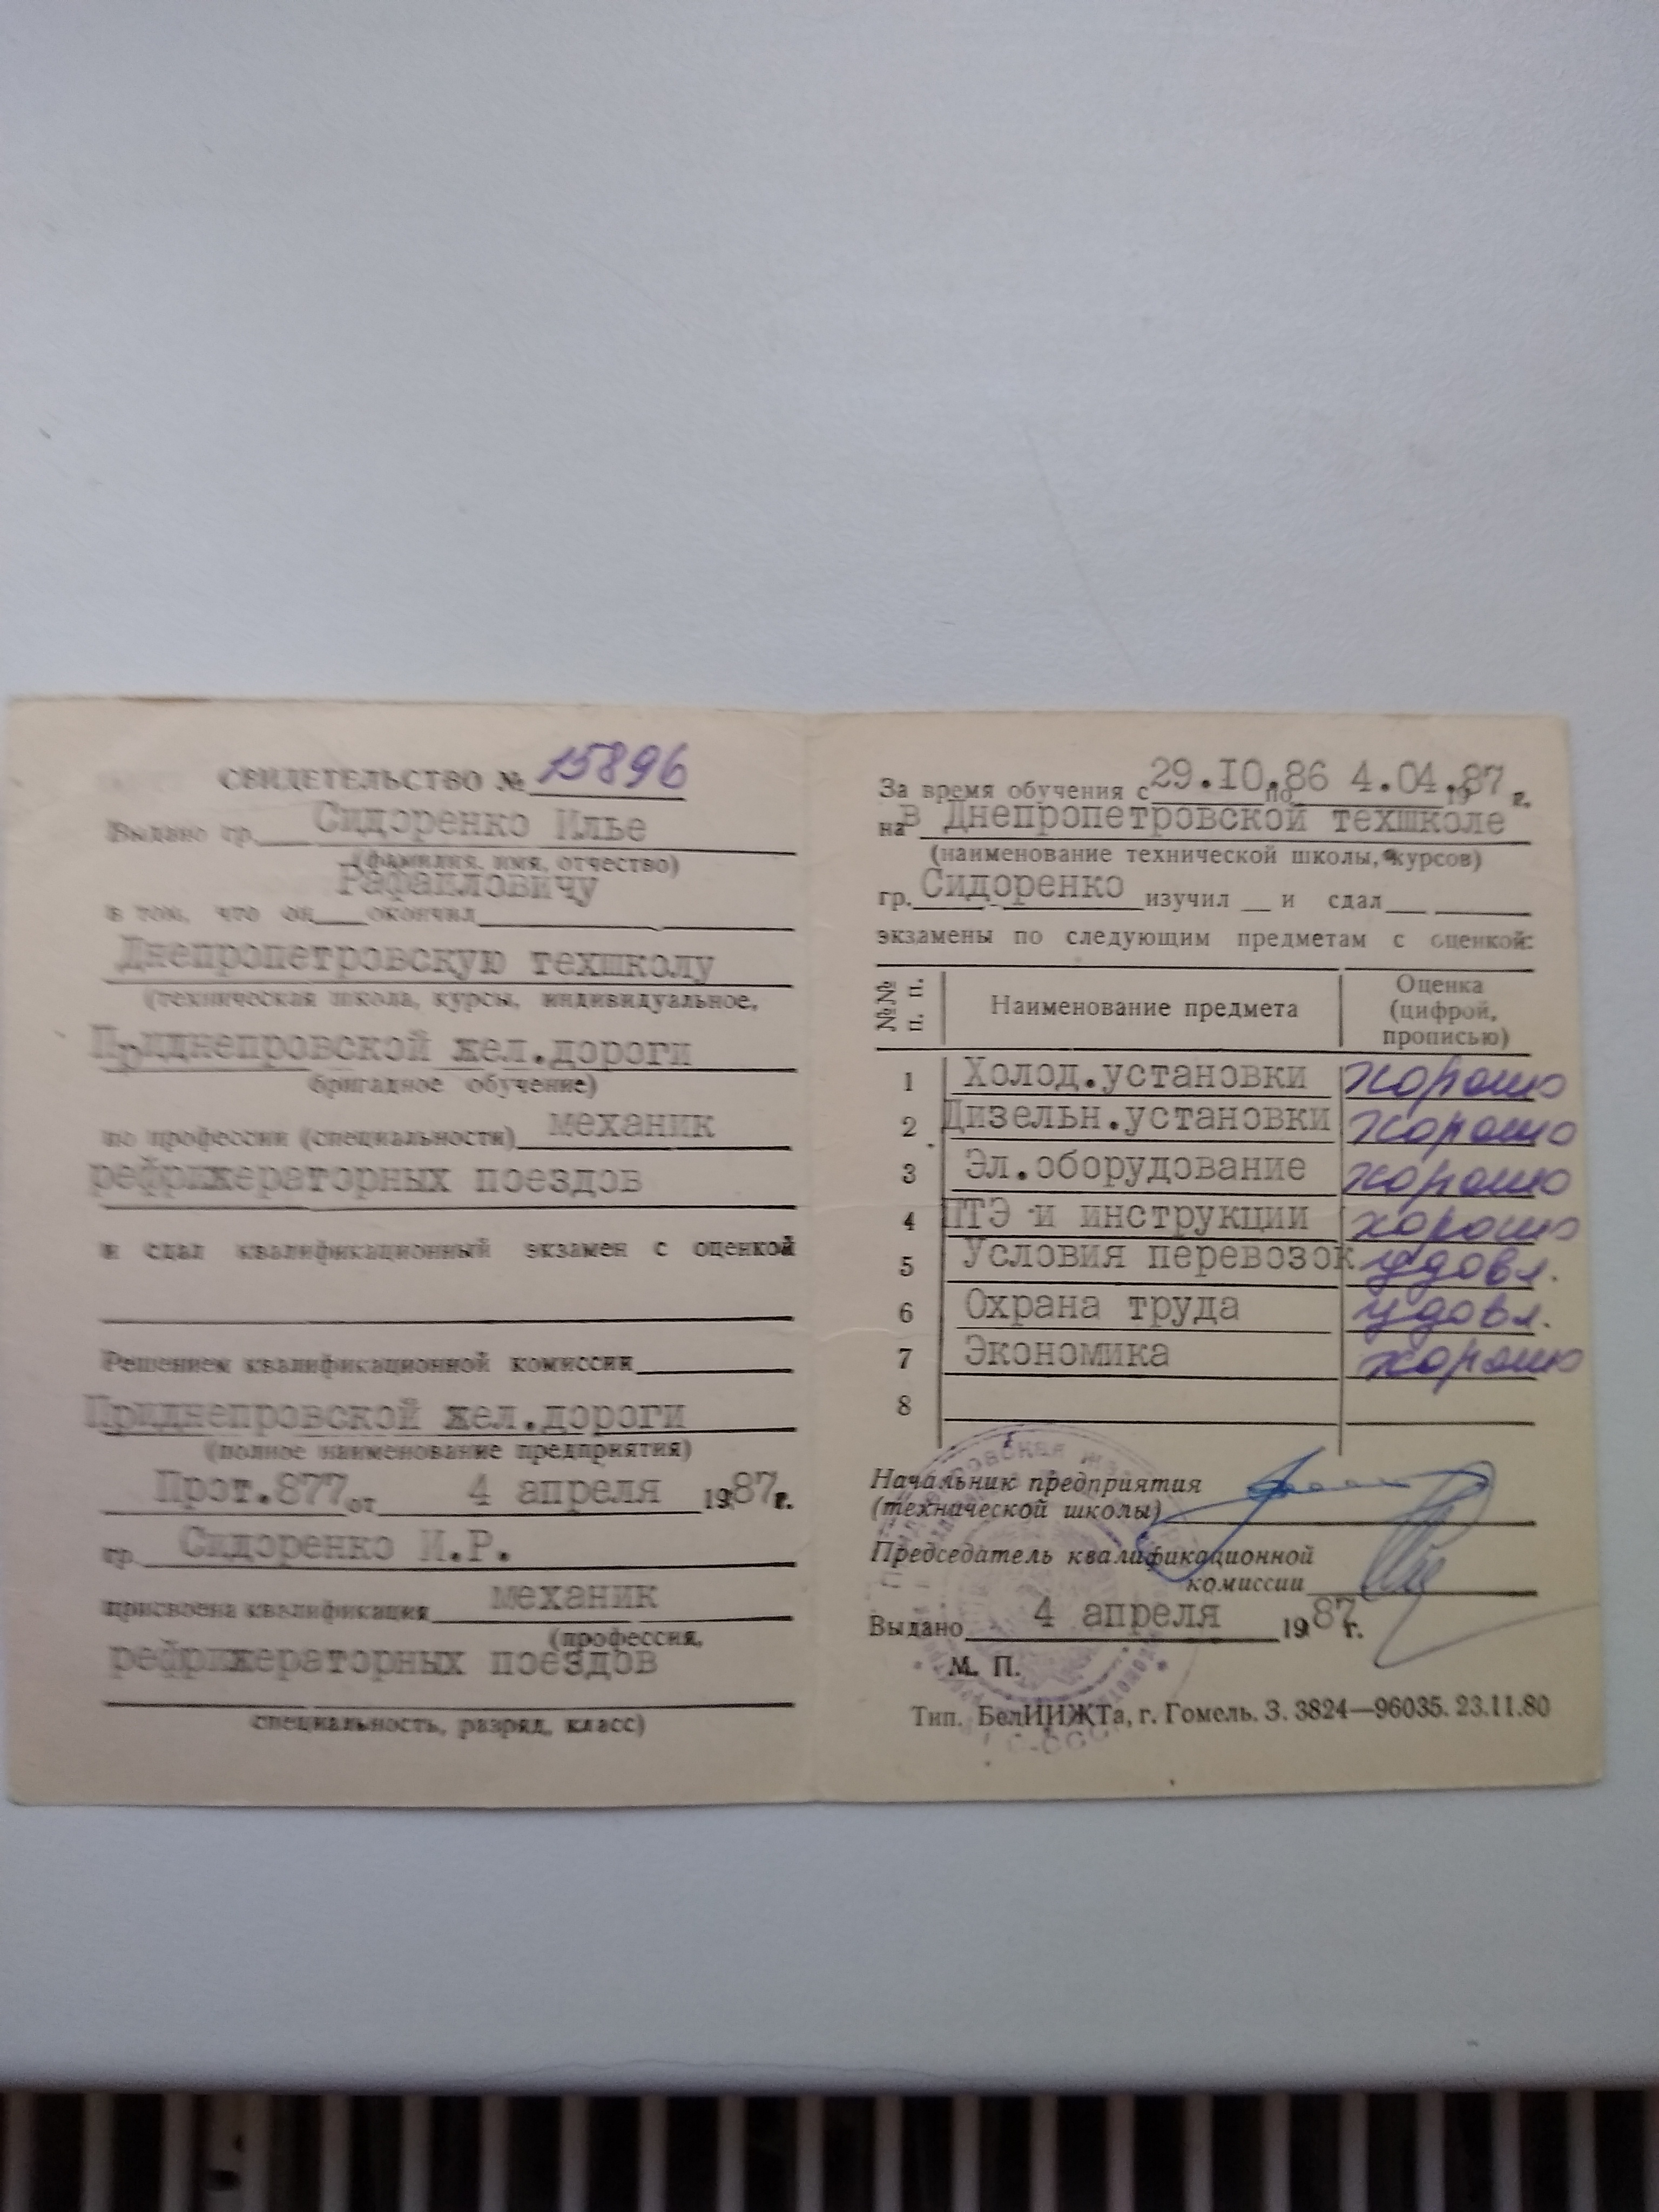 СВИДЕТЕЛЬСТВО № 15896
Выдано гр. Сидоренко Илье
(фамилия, имя, отчество)
Рафаиловичу
в том, что он окончил
Днепропетровскую техшколу
(техническая школа, курсы, индивидуальное,
Приднепровской жел.дороги
бригадное обучение)
по профессии (специальности) механик
рефрижераторных поездов
и сдал квалификационный экзамен с оценкой
Решением квалификационной комиссии
Приднепровской жел.дороги
(полное наименование предприятия)
Прот.877 от 4 апреля 1987г.
гр. Сидоренко И.Р.
присвоена квалификация механик
(профессия,
рефрижераторных поездов
специальность, разряд, класс)
За время обучения с 29.IO.86 по 4.04.1987 г.
на в Днепропетровской техшколе
(наименование технической школы, курсов)
гр. Сидоренко изучил и сдал
экзамены по следующим предметам с оценкой:
№№ п. п. Наименование предмета Оценка (цифрой, прописью)
1 Холод.установки хорошо
2 Дизельн.установки хорошо
3 Эл.оборудование хорошо
4 ПТЭ и инструкции хорошо
5 Условия перевозок удовл.
6 Охрана труда удовл.
7 Экономика хорошо
8
Начальник предприятия
(технической школы)
Председатель квалификационной
комиссии
Выдано 4 апреля 1987 г.
М. П.
Тип. БелИИЖТа, г. Гомель. З. 3824—96035. 23.11.80